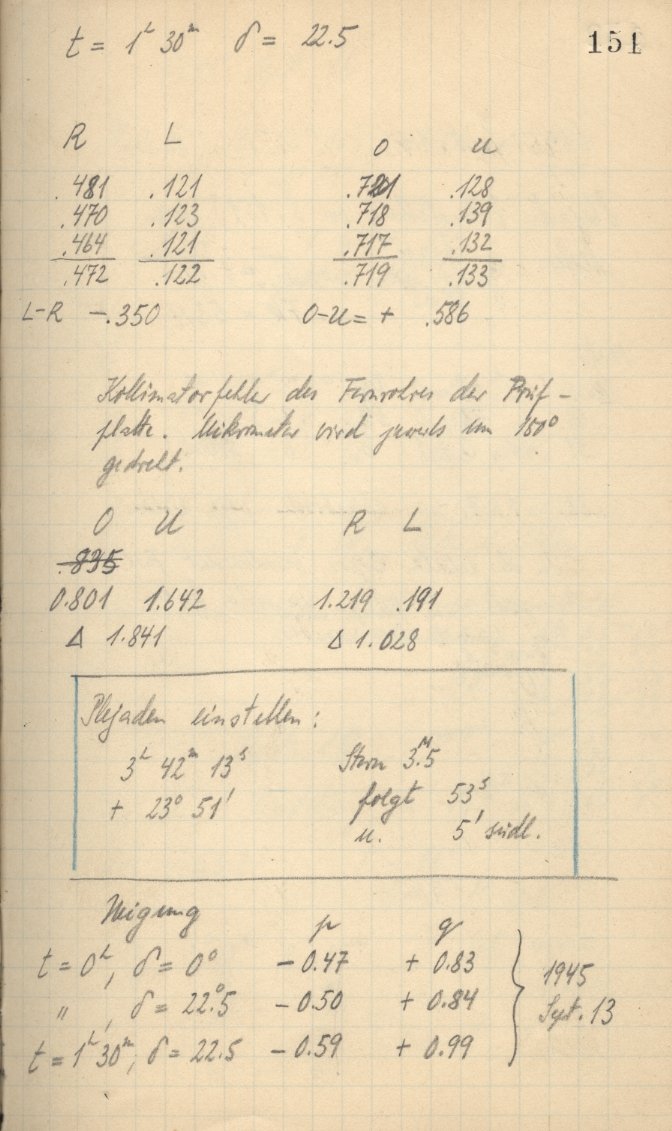 t = 1ʰ 30ᵐ δ = 22.5
151
R L O U
.481 .121 .721 .128
.470 .123 .718 .139
.464 .121 .717 .132
.472 .122 .719 .133
L-R -.350 O-U = + .586
Kollimatorfehler des Fernrohres der Prüf-
platte. Mikrometer wird jeweils um 180°
gedreht.
O U R L
.835
0.801 1.642 1.219 .191
Δ 1.841 Δ 1.028
Plejaden einstellen:
3ʰ 42ᵐ 13ˢ Stern 3.ᴹ5
+ 23° 51' folgt 53ˢ
u. 5' südl.
Neigung p q
t = 0ʰ, δ = 0° -0.47 + 0.83
" , δ = 22.°5 -0.50 + 0.84
t = 1ʰ 30ᵐ, δ = 22.5 -0.59 + 0.99
1945
Sept. 13